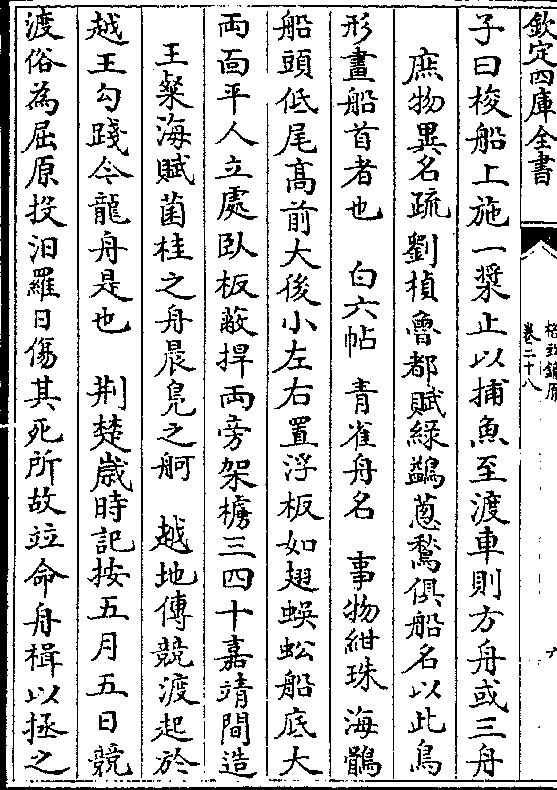 欽定四庫全書
格致鏡原
卷二十八
子曰梭船上施一槳止以捕魚至渡車則方舟或三舟
庶物異名疏劉楨魯都賦緑鷁蔥鶖俱船名以此鳥
形畫船首者也　白六帖　青雀舟名　事物紺珠海鶻
船頭低尾高前大後小左右置浮板如翅蜈蚣船底大
両面平人立處臥板蔽捍両旁架櫓三四十嘉靖間造
王粲海賦菌桂之舟晨鳧之舸　越地傳競渡起於
越王勾踐今龍舟是也　荆楚歳時記按五月五日競
渡俗為屈原投汨羅日傷其死所故竝命舟楫以拯之